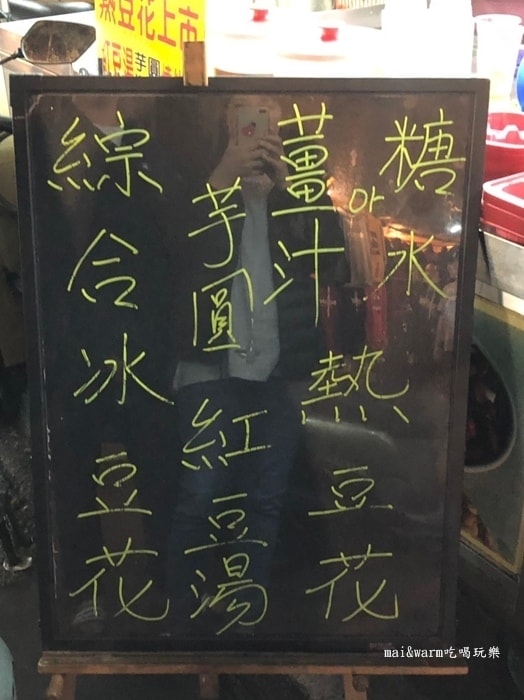 熱豆花上市
紅豆湯芋圓
糖水
or
薑汁
熱豆花
芋圓
紅豆湯
綜合冰
豆花
mai&warm吃喝玩樂